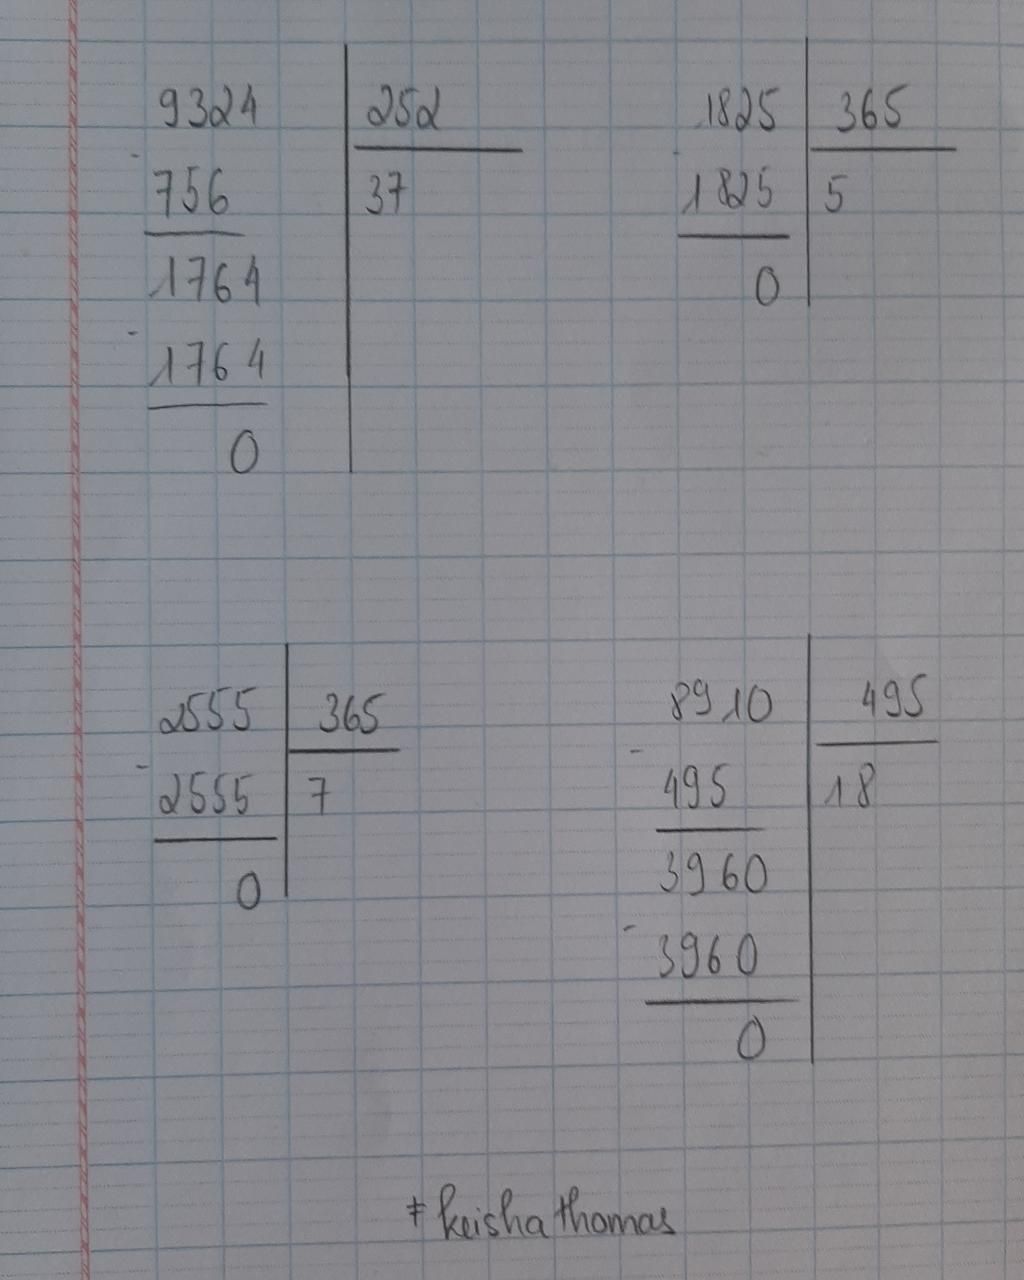 9324 252
- 756 37
1764
- 1764
0
1825 365
- 1825 5
0
2555 365
- 2555 7
0
8910 495
- 495 18
3960
- 3960
0
#keisha thomas